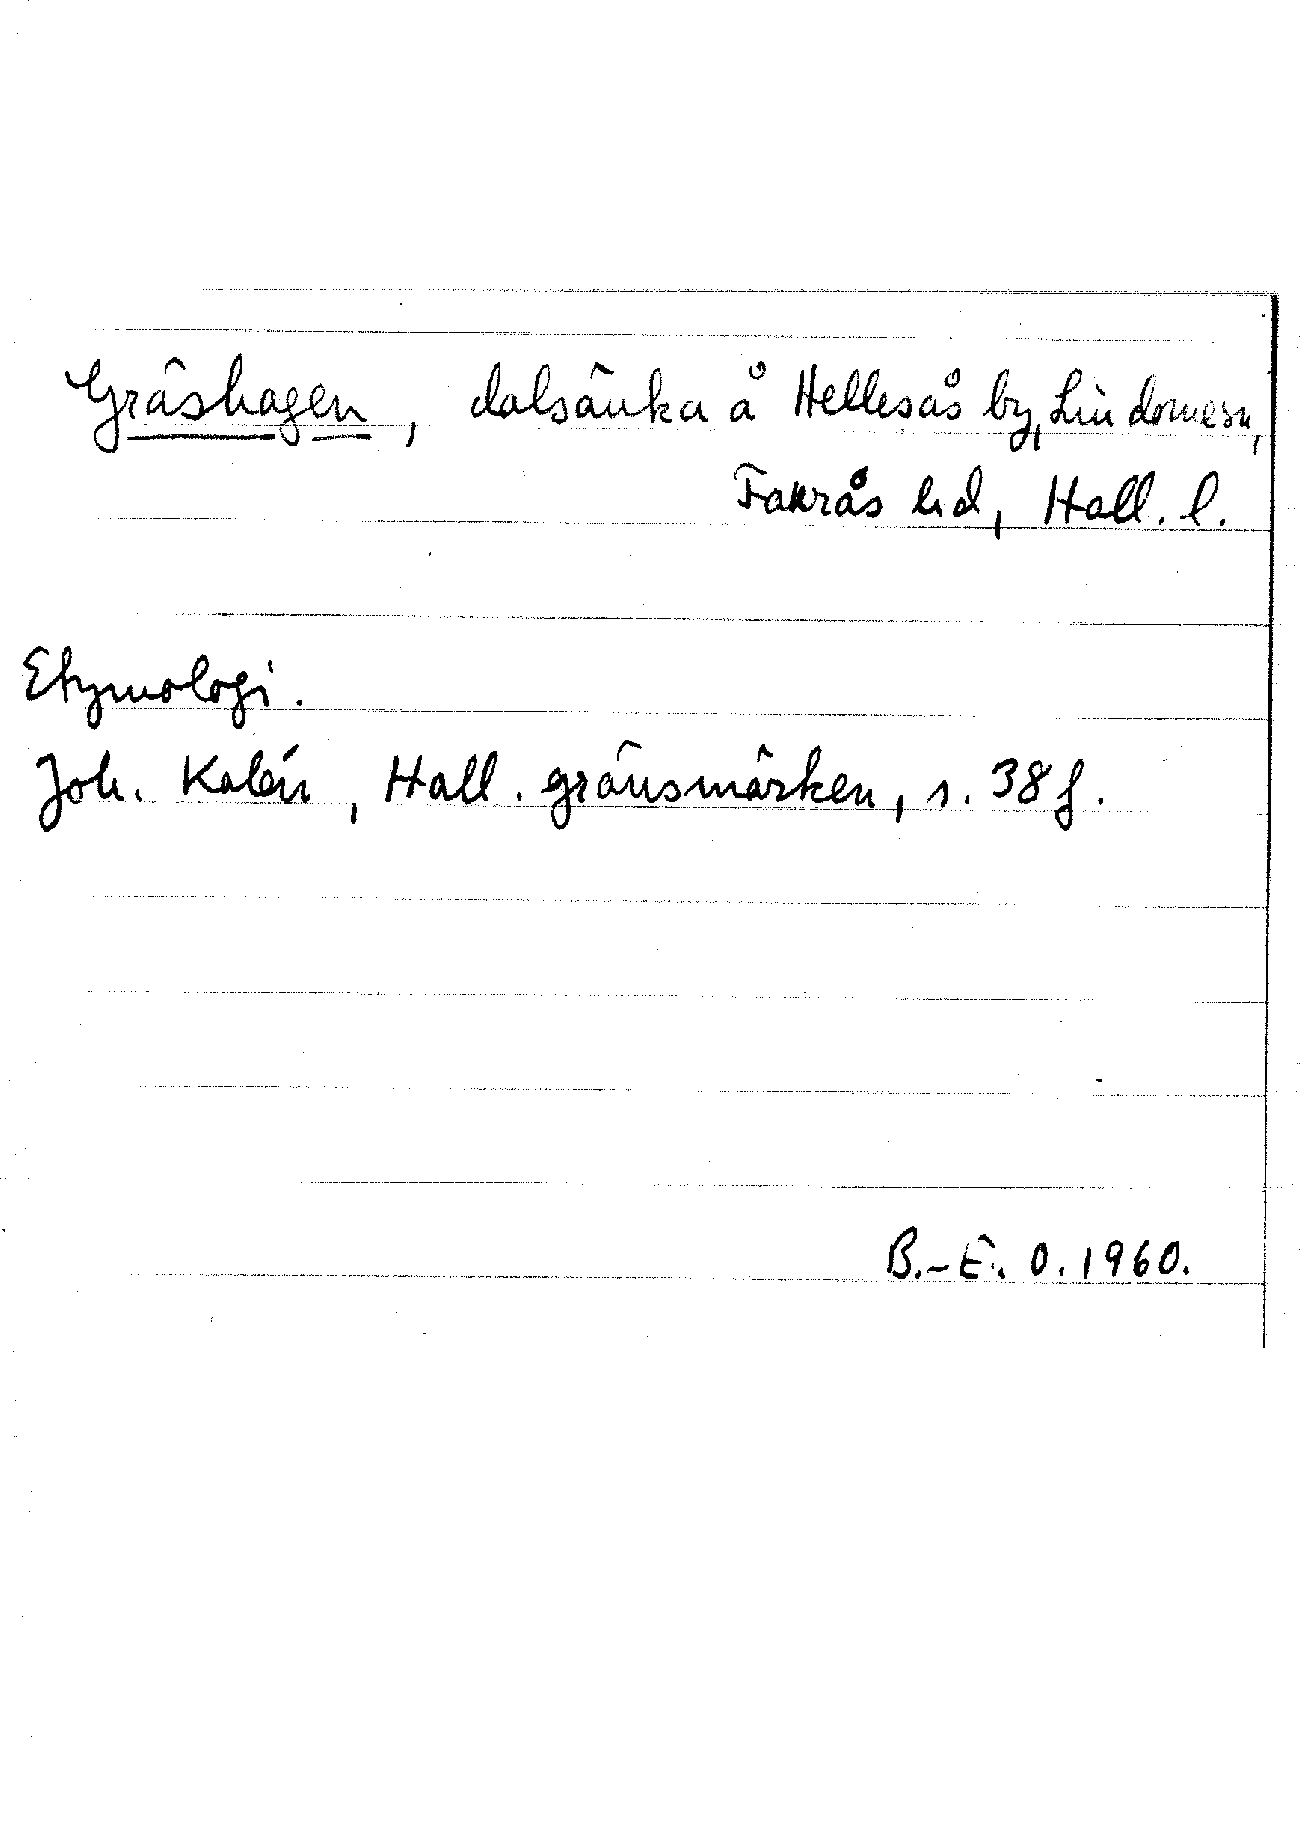 Gräshagen, dalsänka å Hellesås by, Lindomesn,
Fakrås hd, Hall. l.
Etymologi.
Joh. Kalén, Hall. gränsmärken, s. 38 f.
B.-E. O. 1960.